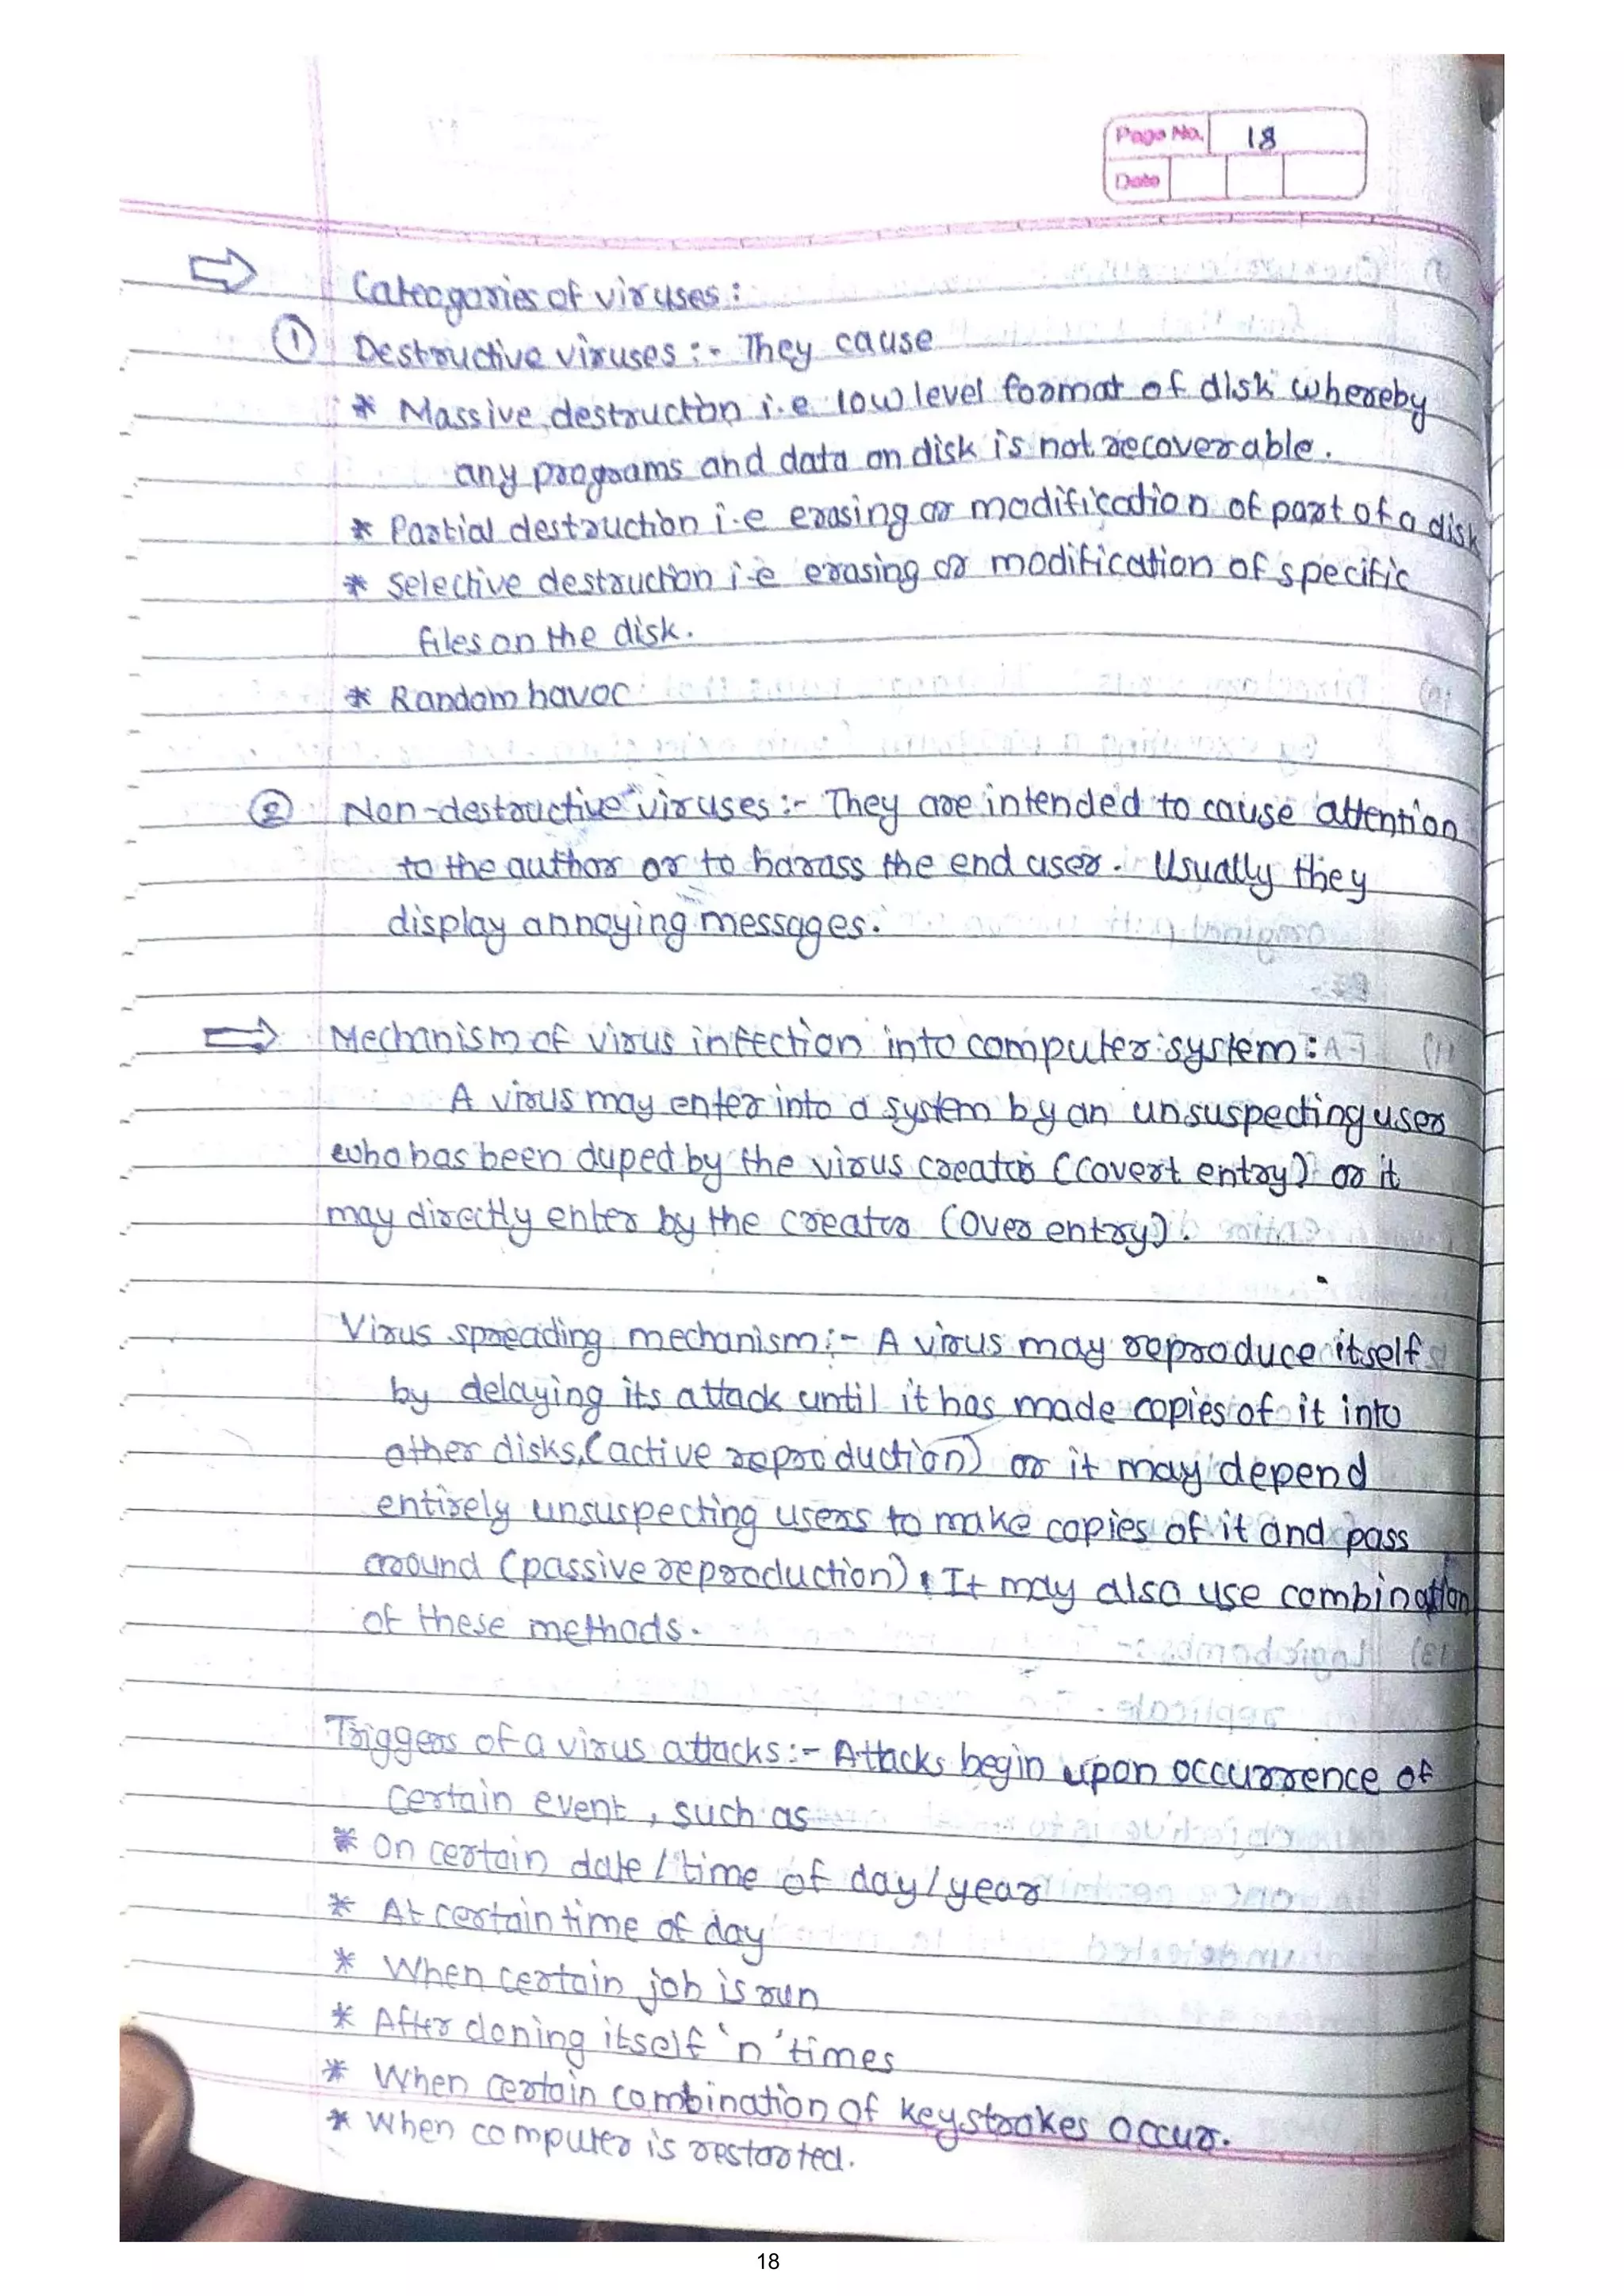 Page No. 18
Date
⇒ Cateogories of viruses :
① Destructive viruses :- They cause
* Massive destruction i.e. low level format of disk whereby
any programs and data on disk is not recoverable.
* Partial destruction i.e erasing or modification of part of a disk
* Selective destruction i.e erasing or modification of specific
files on the disk.
* Random havoc
② Non-destructive viruses :- They are intended to cause attention
to the author or to harass the end user. Usually they
display annoying messages.
⇒ Mechanism of virus infection into computer system :
A virus may enter into a system by an unsuspecting user
who has been duped by the virus creator (covert entry) or it
may directly enter by the creator (over entry).
Virus spreading mechanism :- A virus may reproduce itself
by delaying its attack until it has made copies of it into
other disks, (active reproduction) or it may depend
entirely unsuspecting users to make copies of it and pass
around (passive reproduction). It may also use combination
of these methods.
Triggers of a virus attacks :- Attacks begin upon occurrence of
certain event, such as
* On certain date / time of day / year
* At certain time of day
* When certain job is run
* After cloning itself 'n' times
* When certain combination of keystrokes occur.
* When computer is restarted.
18